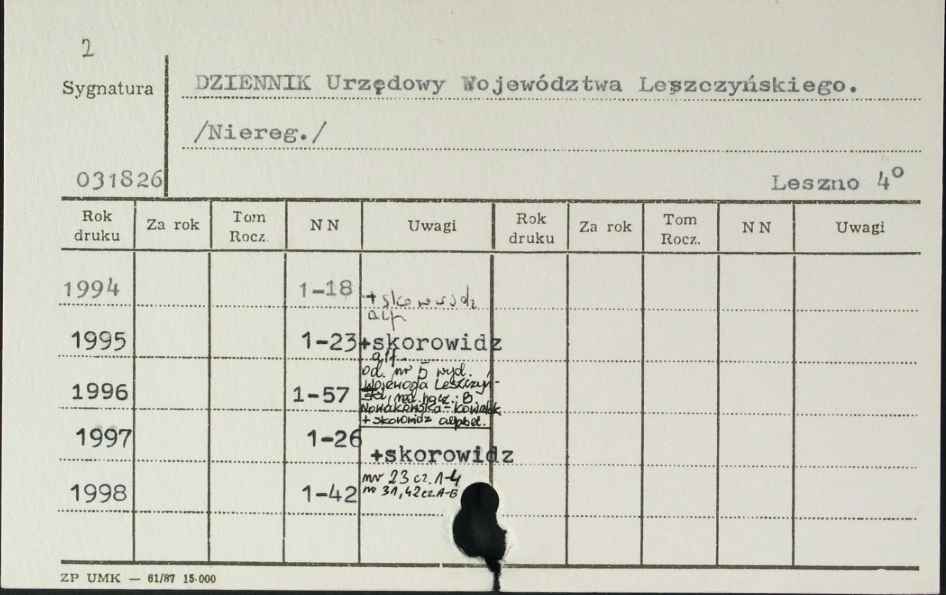 2
Sygnatura
DZIENNIK Urzędowy Województwa Leszczyńskiego.
/Niereg./
031826
Leszno 4°
Rok druku Za rok Tom Rocz. NN Uwagi Rok druku Za rok Tom Rocz. NN Uwagi
1994 1-18 + skorowidz
alf.
1995 1-23 +skorowidz
alf.
od. nr 5 wyd.
Wojewoda Leszczyń-
1996 1-57 ski, red. nacz.: B.
Nowakowska-Kowalik
+ skorowidz alfabet.
1997 1-26
+skorowidz
nr 23 cz. 1-4
1998 1-42 nr 31, 42 cz. A-B
ZP UMK — 61/87 15·000